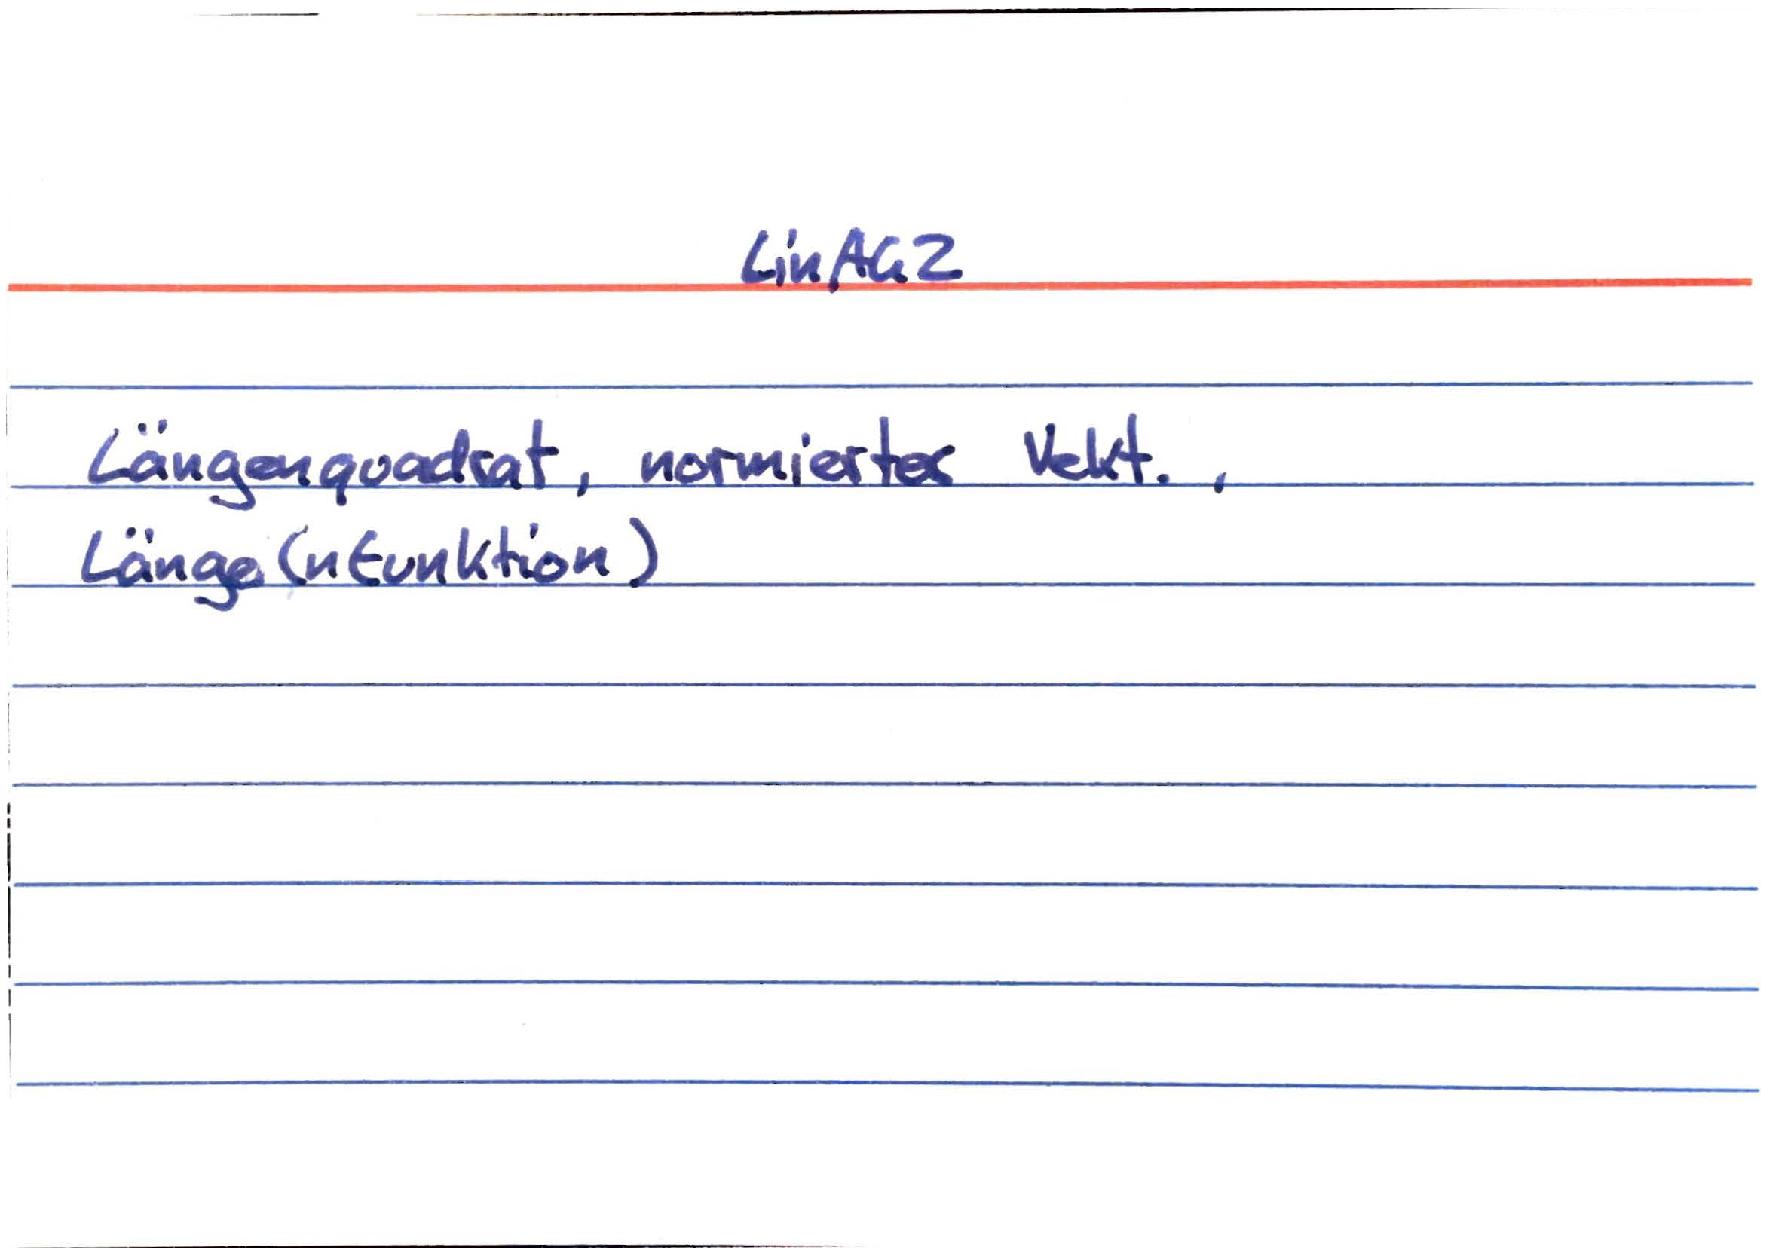 LinAG2
Längenquadrat, normierter Vekt.,
Länge(nfunktion)